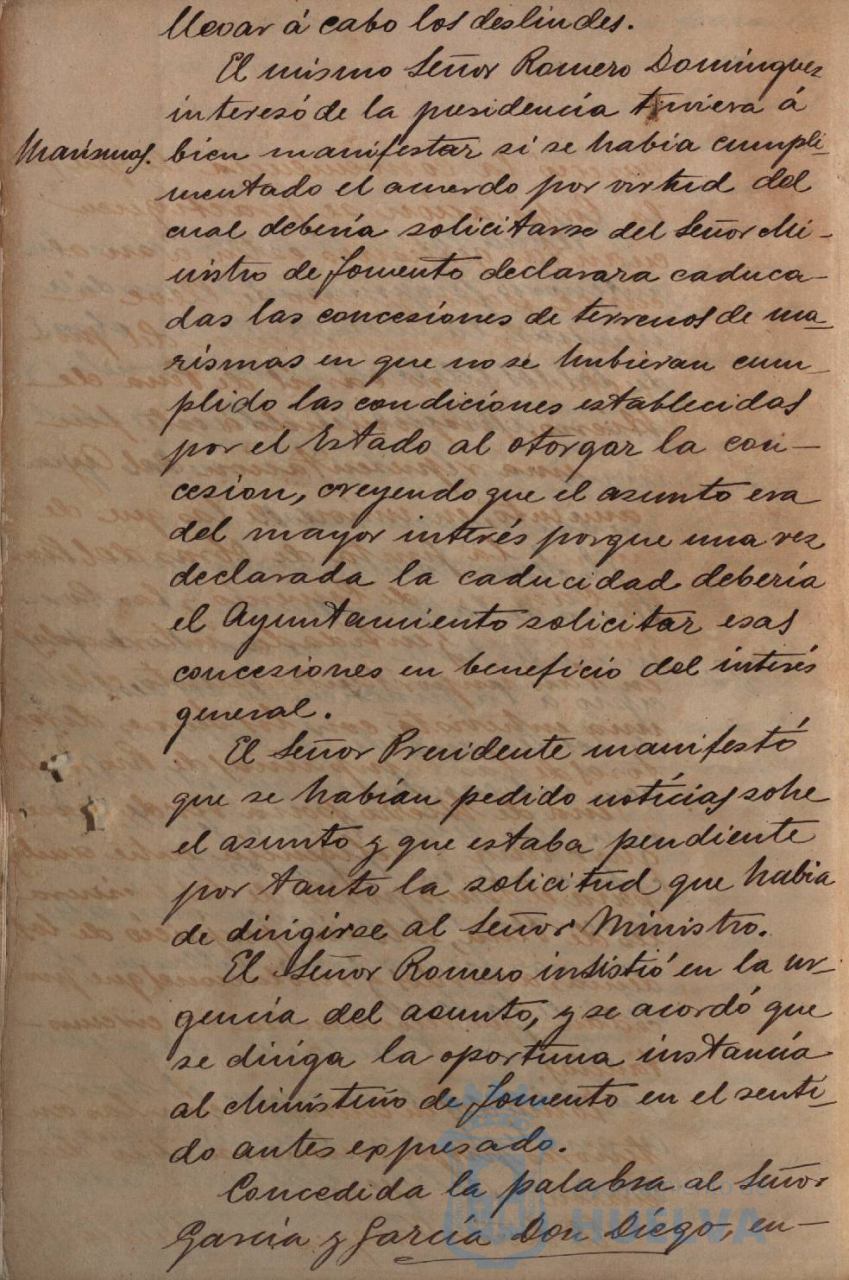 llevar á cabo los deslindes.
El mismo Señor Romero Domínguez
interesó de la presidencia tuviera á
Marismas.
bien manifestar si se había cumpli-
mentado el acuerdo por virtud del
cual debería solicitarse del Señor Mi-
nistro de Fomento declarara caduca-
das las concesiones de terrenos de ma-
rismas en que no se hubieran cum-
plido las condiciones establecidas
por el Estado al otorgar la con-
cesion, creyendo que el asunto era
del mayor interés porque una vez
declarada la caducidad debería
el Ayuntamiento solicitar esas
concesiones en beneficio del interés
general.
El Señor Presidente manifestó
que se habían pedido noticias sobre
el asunto y que estaba pendiente
por tanto la solicitud que había
de dirigirse al Señor Ministro.
El Señor Romero insistió en la ur-
gencia del asunto, y se acordó que
se diriga la oportuna instancia
al Ministrio de Fomento en el senti-
do antes expresado.
Concedida la palabra al Señor
García y García Don Diego, en-
HUELVA